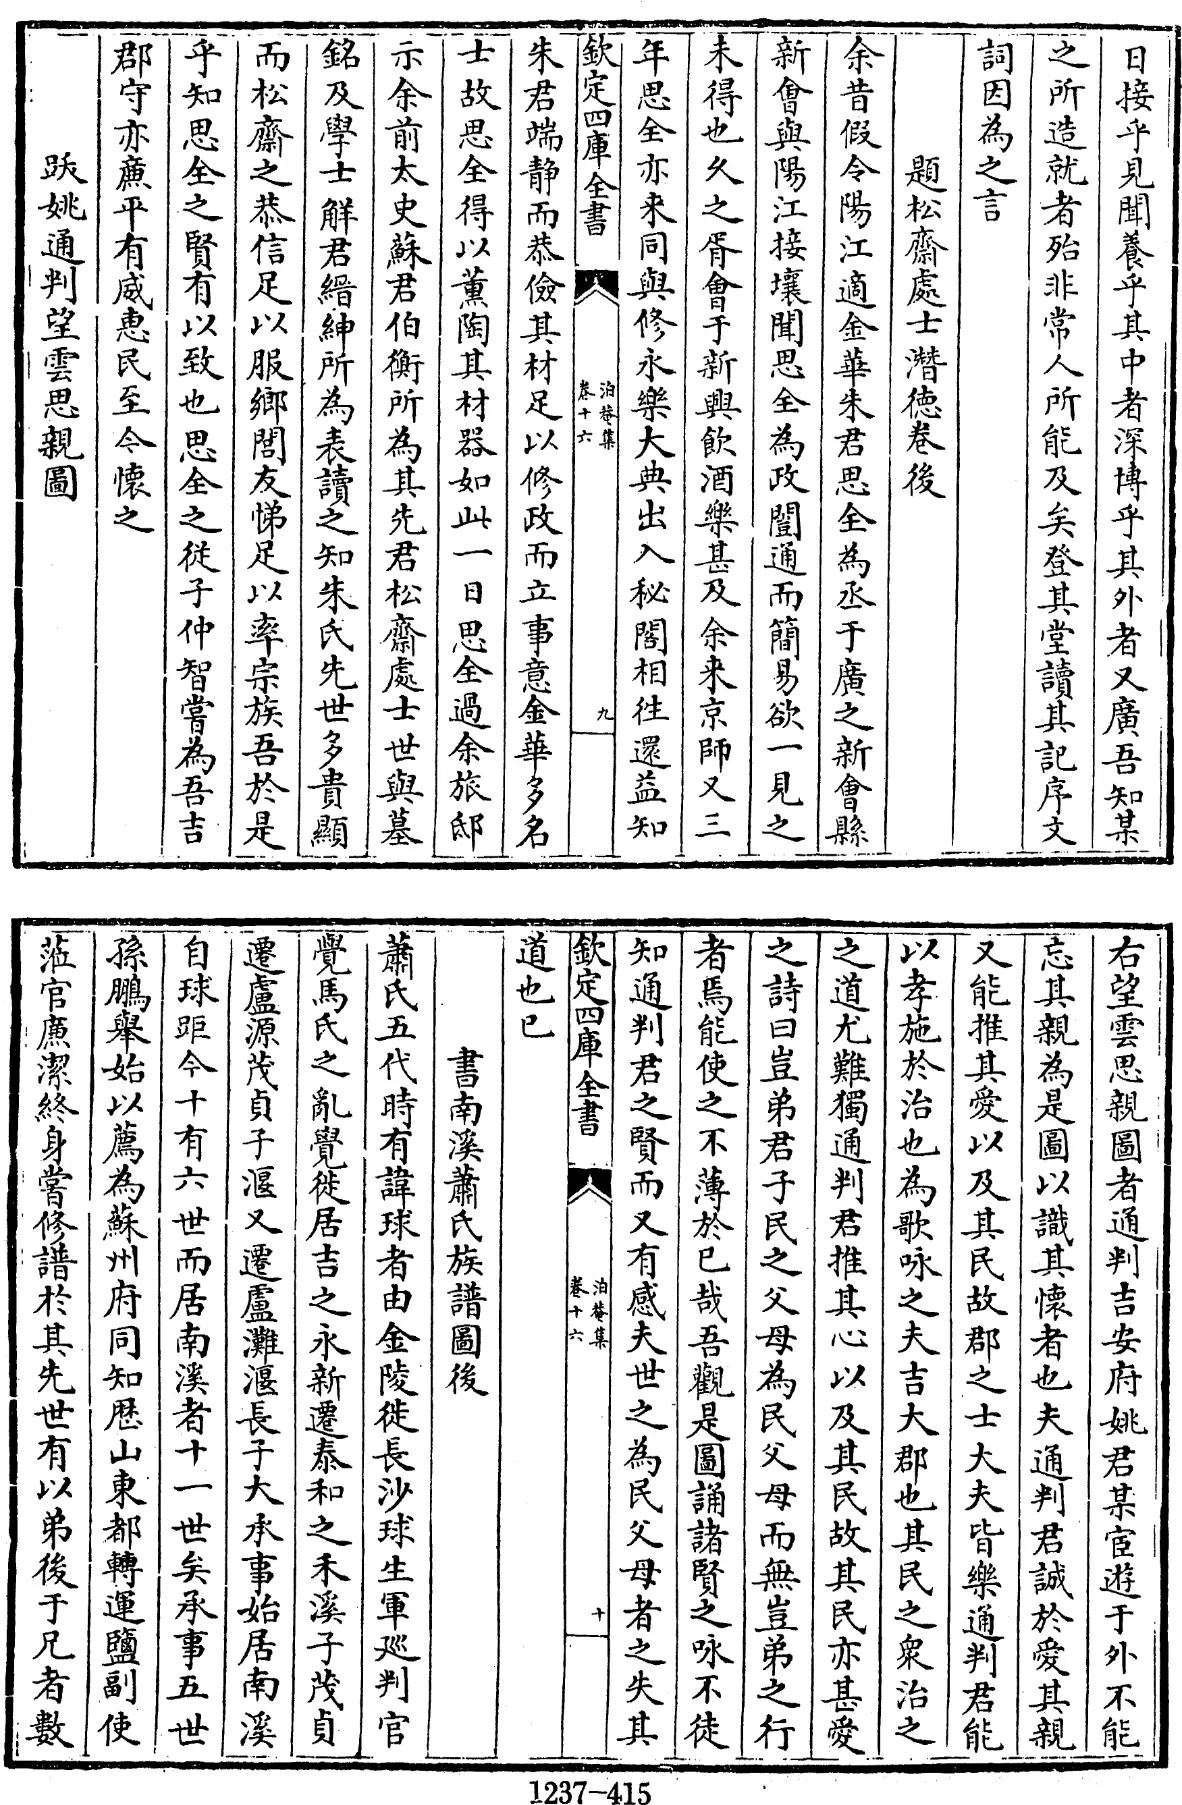 日接乎見聞養乎其中者深博乎其外者又廣吾知某
之所造就者殆非常人所能及矣登其堂讀其記序文
詞因為之言
題松齋處士濳德卷後
余昔假令陽江適金華朱君思全為丞于廣之新會縣
新會與陽江接壤聞思全為政闓通而簡易欲一見之
未得也久之胥會于新興飲酒樂甚及余来京師又三
年思全亦来同與修永樂大典出入秘閣相徃還益知
欽定四庫全書
泊菴集
卷十六
九
朱君端静而恭儉其材足以修政而立事意金華多名
士故思全得以薰陶其材器如此一日思全過余旅邸
示余前太史蘇君伯衡所為其先君松齋處士世與墓
銘及學士解君縉紳所為表讀之知朱氏先世多貴顯
而松齋之恭信足以服鄉閭友悌足以率宗族吾於是
乎知思全之賢有以致也思全之從子仲智嘗為吾吉
郡守亦廉平有威惠民至今懷之
跋姚通判望雲思親圖
右望雲思親圖者通判吉安府姚君某宦遊于外不能
忘其親為是圖以識其懷者也夫通判君誠於愛其親
又能推其愛以及其民故郡之士大夫皆樂通判君能
以孝施於治也為歌咏之夫吉大郡也其民之衆治之
之道尤難獨通判君推其心以及其民故其民亦甚愛
之詩曰豈弟君子民之父母為民父母而無豈弟之行
者焉能使之不薄於已哉吾觀是圖誦諸賢之咏不徒
知通判君之賢而又有感夫世之為民父母者之失其
欽定四庫全書
泊菴集
卷十六
十
道也已
書南溪蕭氏族譜圖後
蕭氏五代時有諱球者由金陵徙長沙球生軍廵判官
覺馬氏之亂覺徙居吉之永新遷泰和之禾溪子茂貞
遷盧源茂貞子渥又遷盧灘渥長子大承事始居南溪
自球距今十有六世而居南溪者十一世矣承事五世
孫鵬舉始以薦為蘇州府同知歴山東都轉運鹽副使
涖官廉潔終身嘗修譜於其先世有以弟後于兄者數
1237-415